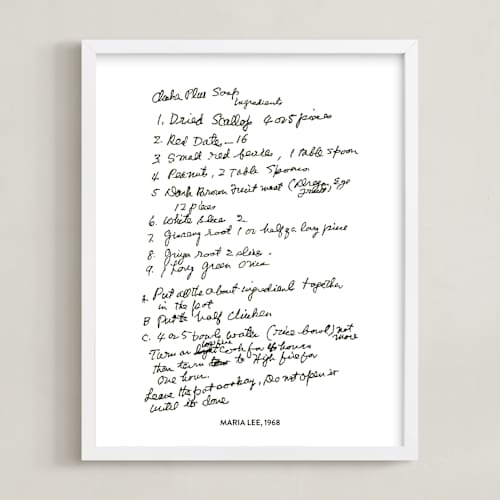 Soup
Ingredients
1. Dried Scallop 4 or 5 pieces
2. Red Date, — 16
3. Small red beans, 1 table spoon
4. Peanut, 2 Table Spoons
5 Dark Brown Fruit meat (Dragon Eye
Fruit)
12 pieces
6. White 2
7. Ginseng root 1 or half of a long piece
8. root 2 slice.
9. 1 Long green onion
A. Put all the about ingredient together
in the pot
B Put half chicken
C. 4 or 5 bowls water (rice bowl) not
more
Turn on low fire cook for 4 hours
then turn to High fire for
One hour.
Leave the pot , Do not open it
until it's done
MARIA LEE, 1968